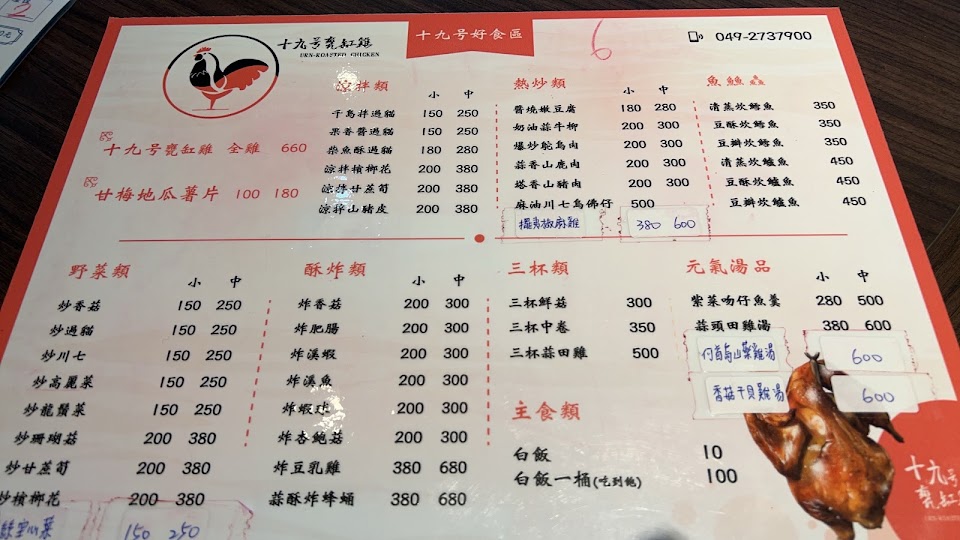 十九号甕缸雞
URN-ROASTED CHICKEN
十九号好食區
6
049-2737900
十九号甕缸雞 全雞 660
甘梅地瓜薯片 100 180
涼拌類 小 中
千島拌過貓 150 250
果香醬過貓 150 250
柴魚酥過貓 180 280
涼拌檳榔花 200 380
涼拌甘蔗筍 200 380
涼拌山豬皮 200 380
熱炒類 小 中
醬燒嫩豆腐 180 280
奶油蒜牛柳 200 300
爆炒鴕鳥肉 200 300
蒜香山鹿肉 200 300
塔香山豬肉 200 300
麻油川七烏佛仔 500
椒麻雞 380 600
魚鱻鱻
清蒸炊鱈魚 350
豆酥炊鱈魚 350
豆瓣炊鱈魚 350
清蒸炊鱸魚 450
豆酥炊鱸魚 450
豆瓣炊鱸魚 450
野菜類 小 中
炒香菇 150 250
炒過貓 150 250
炒川七 150 250
炒高麗菜 150 250
炒龍鬚菜 150 250
炒珊瑚菇 200 380
炒甘蔗筍 200 380
炒檳榔花 200 380
空心菜 150 250
酥炸類 小 中
炸香菇 200 300
炸肥腸 200 300
炸溪蝦 200 300
炸溪魚 200 300
炸蝦球 200 300
炸杏鮑菇 200 300
炸豆乳雞 380 680
蒜酥炸蜂蛹 380 680
三杯類
三杯鮮菇 300
三杯中卷 350
三杯蒜田雞 500
主食類
白飯 10
白飯一桶(吃到飽) 100
元氣湯品 小 中
紫菜吻仔魚羹 280 500
蒜頭田雞湯 380 600
何首烏山藥雞湯 600
香菇干貝雞湯 600
十九号
甕缸雞